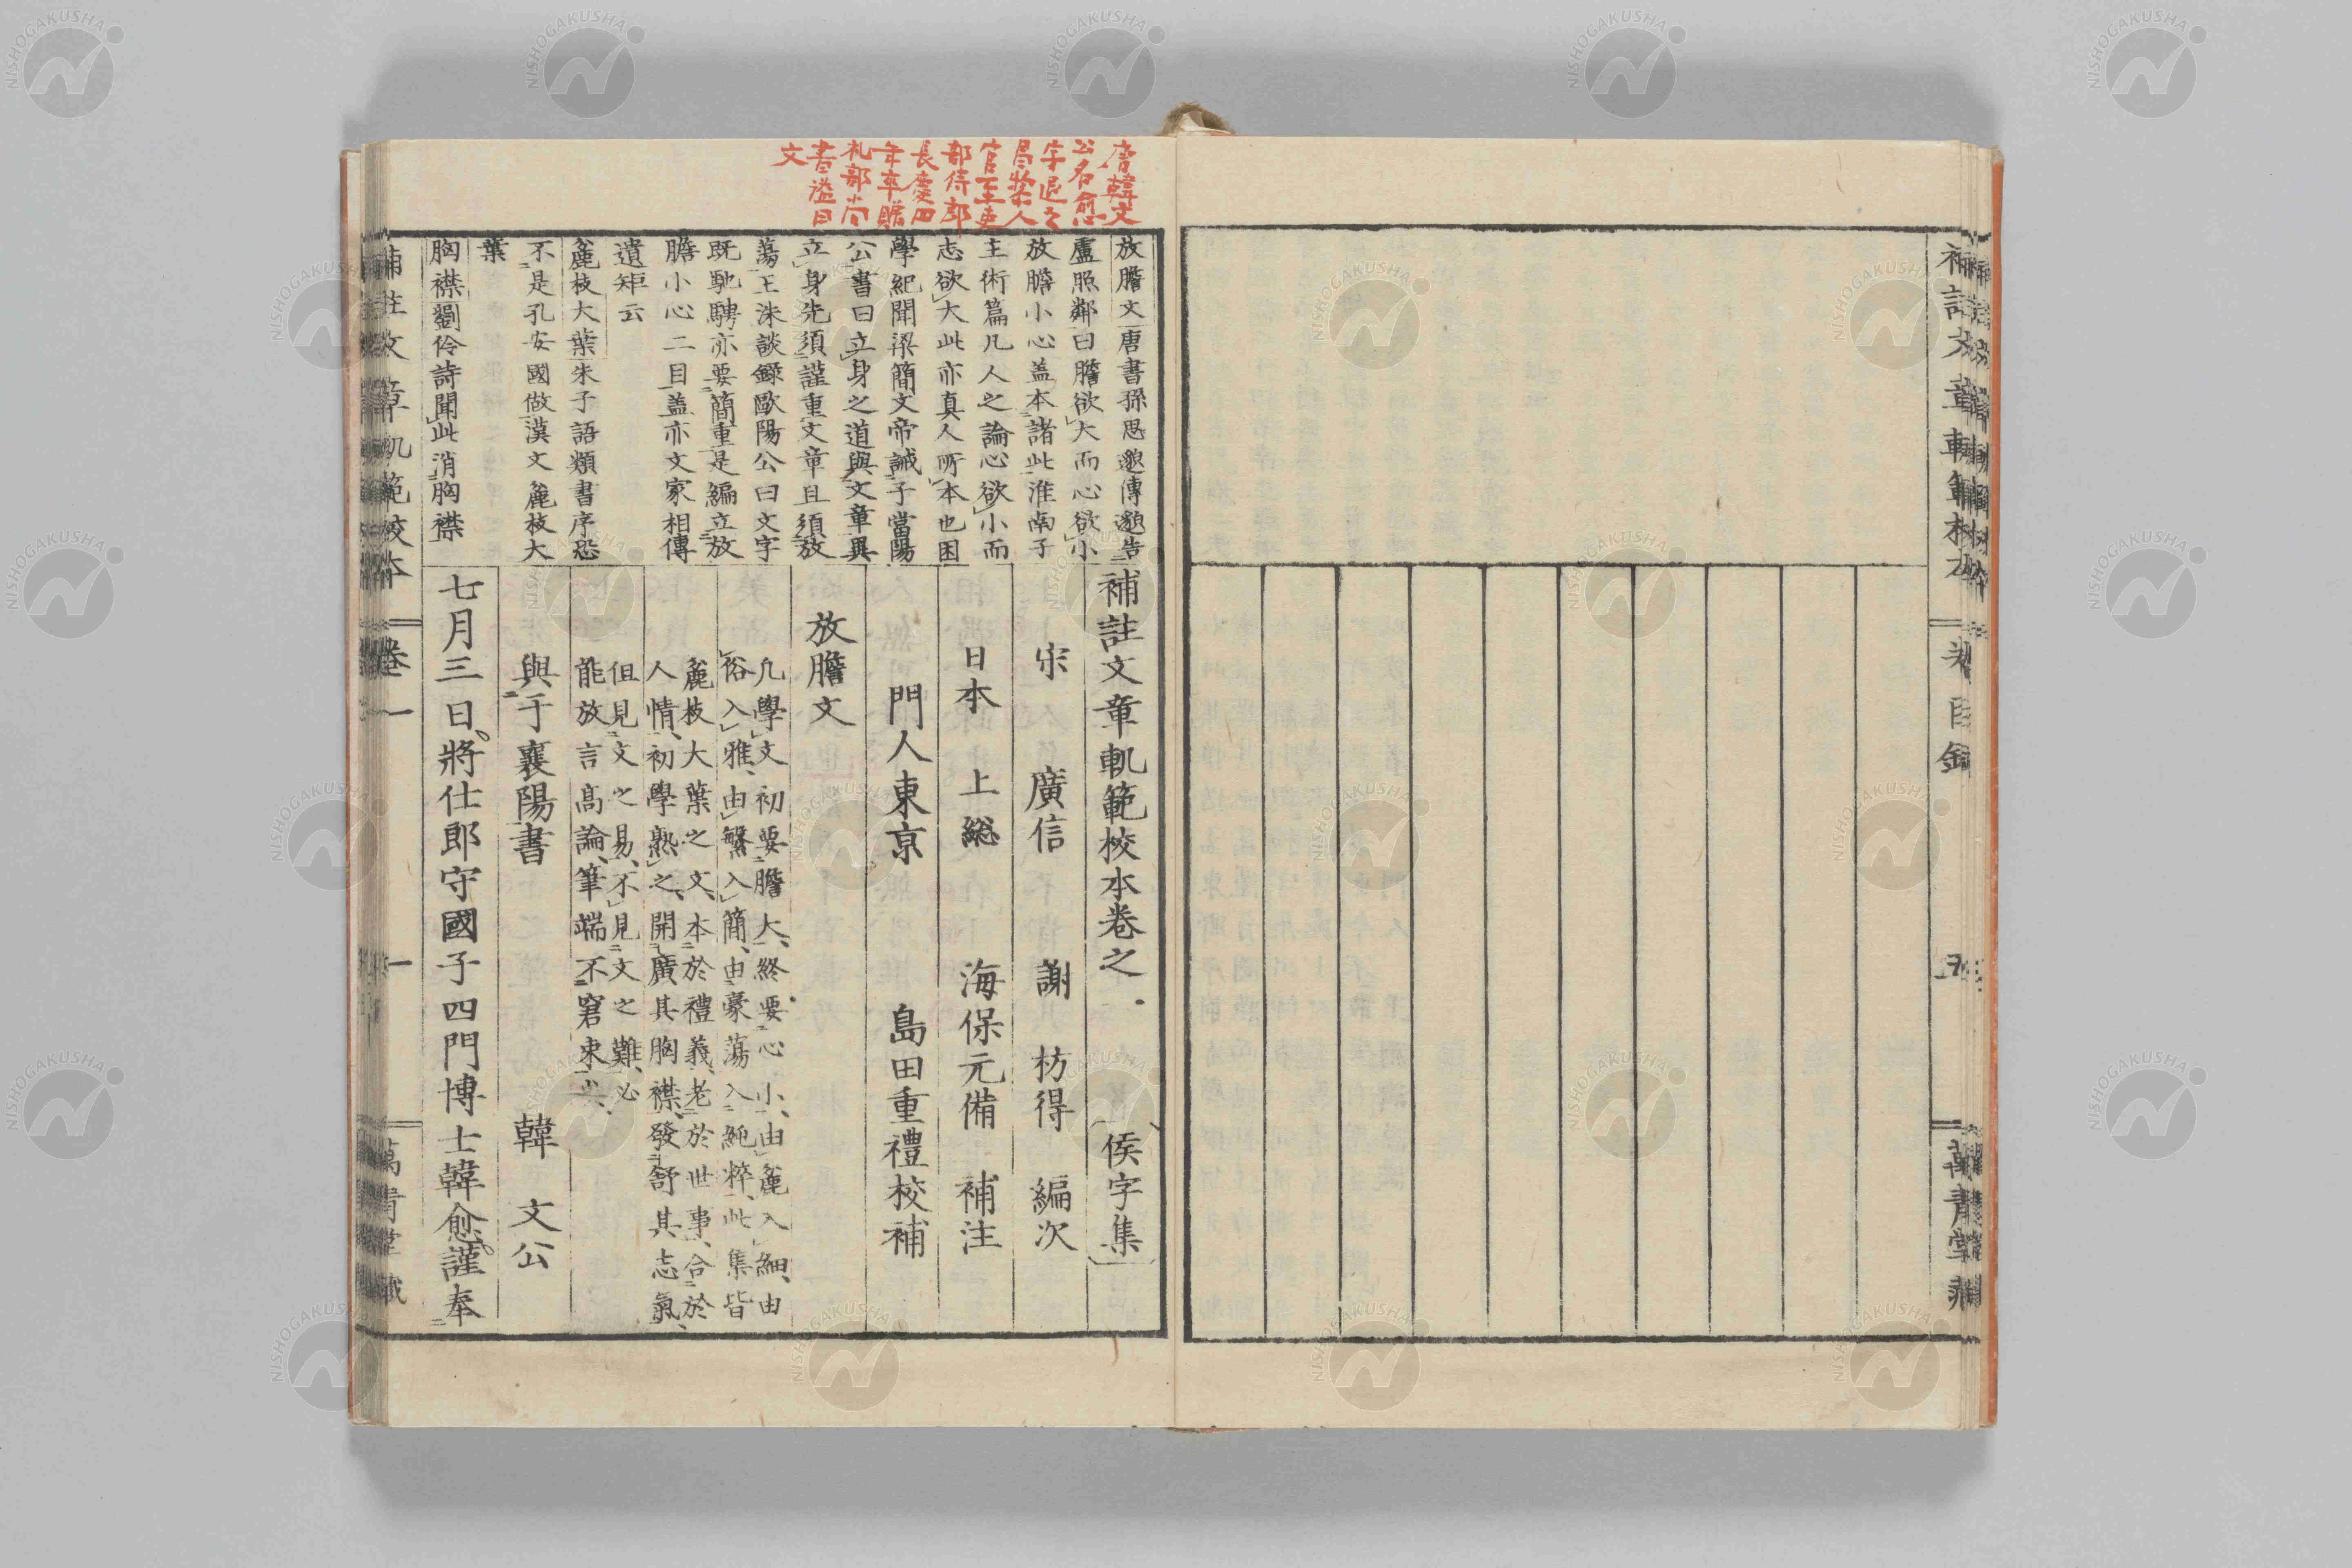 補註文章軌範校本
目錄
唐韓文
公名愈
字退之
昌黎人
官至吏
部侍郎
長慶四
年卒贈
礼部尚
書謚曰
文
放膽文唐書孫思邈傳邈告
盧照鄰曰膽欲大而心欲小
放膽小心蓋本諸此淮南子
主術篇凡人之論心欲小而
志欲大此亦真人所本也困
學紀聞梁簡文帝誡子當陽
公書曰立身之道與文章異
立身先須謹重文章且須放
蕩王洙談錄歐陽公曰文字
既馳騁亦要簡重是編立放
膽小心二目蓋亦文家相傳
遺矩云
麁枝大葉朱子語類書序恐
不是孔安國做漢文麁枝大
葉
胸襟劉伶詩聞此消胸襟
補註文章軌範校本卷之 〔侯字集〕
宋 廣信 謝 枋得 編次
日本 上総 海保元備 補注
門人東京 島田重禮校補
放膽文
凡學文初要膽大、終要心小、由麁入細、由
俗入雅、由繁入簡、由豪蕩入純粹、此集皆
麁枝大葉之文、本於禮義、老於世事、合於
人情、初學熟之、開廣其胸襟、發舒其志氣、
但見文之易、不見文之難、必
能放言高論、筆端不窘束矣、
與于襄陽書 韓 文公
七月三日。將仕郎守國子四門博士韓愈。謹奉
補註文章軌範校本 卷一 一
NISHOGAKUSHA